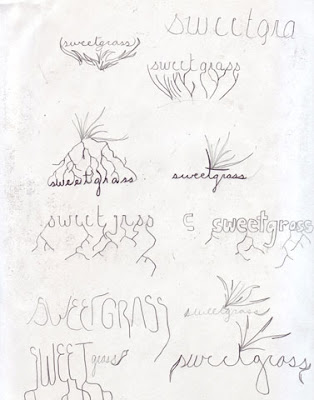 sweetgra
(sweetgrass)
sweetgrass
sweetgrass
sweetgrass
sweet grass
c sweetgrass
SWEETGRASS
sweetgrass
SWEET grass
sweetgrass